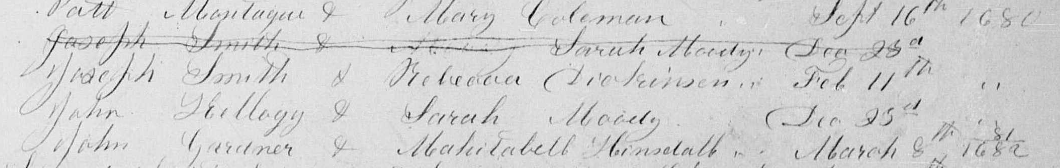 Patt Montague & Mary Coleman " Sept 16th 1680
Joseph Smith & Sarah Moody Dec 23d
Joseph Smith & Rebecca Dickinson " Feb 11th "
John Kellogg & Sarah Moody Dec 23d "
John Gardner & Mahitabell Hinsdall " March 8th 1681/82